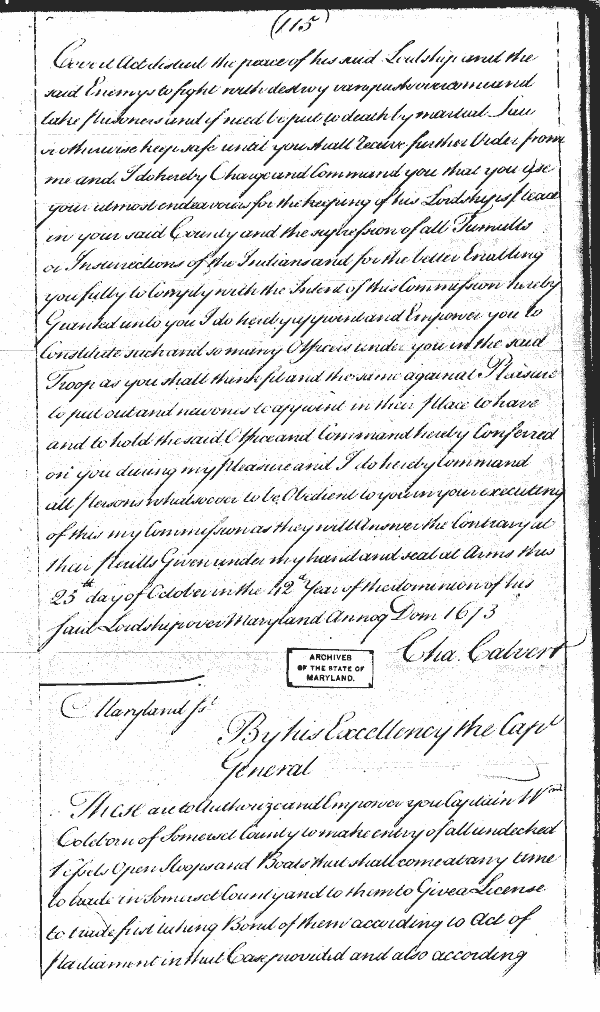 (115)
Covert Act disturb the peace of his said Lordship and the
said Enemys to fight with destroy vanquish overcome and
take Prisoners and if need be put to death by martial Law
or otherwise keep safe until you shall receive further Order from
me and I do hereby Charge and Command you that you use
your utmost endeavours for the keeping of his Lordships Peace
in your said County and the supression of all Tumults
or Insurrections of the Indians and for the better Enabling
you fully to Comply with the Intent of this Commission hereby
Granted unto you I do hereby appoint and Empower you to
Constitute such and so many Officers under you in the said
Troop as you shall think fit and the same again at Pleasure
to put out and new ones to appoint in their Place to have
and to hold the said Office and Command hereby Conferred
on you during my pleasure and I do hereby Command
all Persons whatsoever to be Obedient to you in your executing
of this my Commission as they will Answer the Contrary at
their Perills Given under my hand and seal at Arms this
25th day of October in the 42d Year of the dominion of his
said Lordship over Maryland Annoq Dom 1673
Cha. Calvert
ARCHIVES
OF THE STATE OF
MARYLAND.
Maryland ss.
By his Excellency the Capt
General
These are to Authorize and Empower you Captain Wm
Coleborn of Somerset County to make entry of all undecked
Vessels Open Sloops and Boats that shall come at any time
to trade in Somerset County and to them to Give a License
to trade first taking Bond of them according to Act of
Parliament in that Case provided and also according